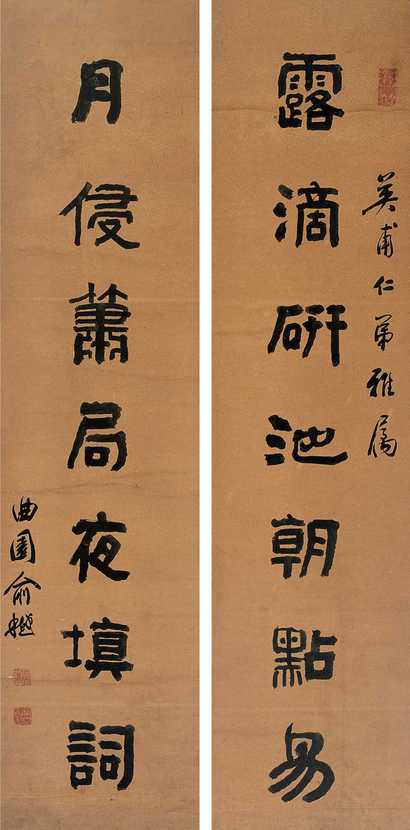 英甫仁弟雅屬
露滴研池朝點易
月侵簫局夜填詞
曲園俞樾